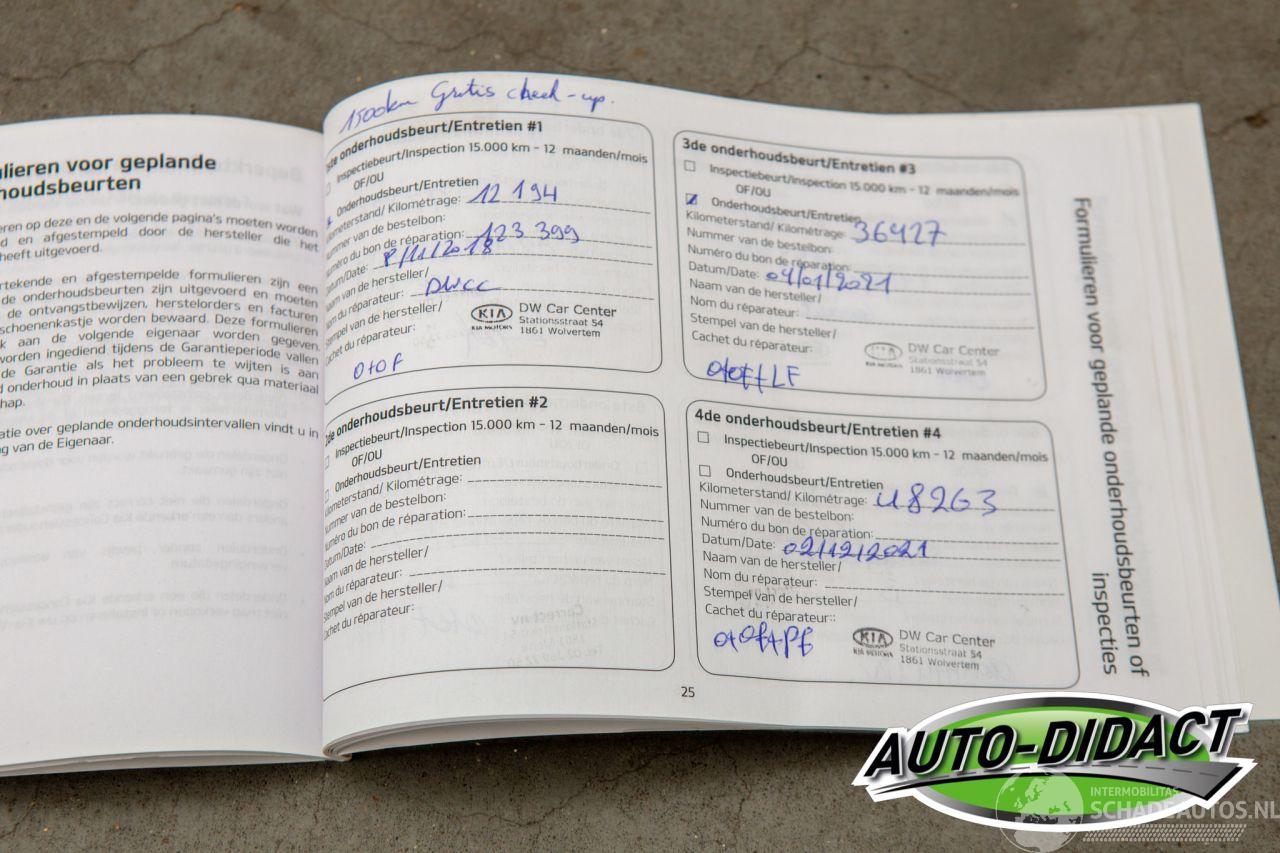 ulieren voor geplande
houdsbeurten
eren op deze en de volgende pagina's moeten worden
d en afgestempeld door de hersteller die het
heeft uitgevoerd.
ertekende en afgestempelde formulieren zijn een
de onderhoudsbeurten zijn uitgevoerd en moeten
de ontvangstbewijzen, herstelorders en facturen
schoenenkastje worden bewaard. Deze formulieren
k aan de volgende eigenaar worden gegeven.
worden ingediend tijdens de Garantieperiode vallen
de Garantie als het probleem te wijten is aan
d onderhoud in plaats van een gebrek qua materiaal
hap.
atie over geplande onderhoudsintervallen vindt u in
ng van de Eigenaar.
1500km Gratis check-up.
1ste onderhoudsbeurt/Entretien #1
Inspectiebeurt/Inspection 15.000 km - 12 maanden/mois
OF/OU
Onderhoudsbeurt/Entretien
Kilometerstand/ Kilométrage: 12 194
Nummer van de bestelbon:
Numéro du bon de réparation: 123 399
Datum/Date: 8/11/2018
Naam van de hersteller/
Nom du réparateur: DWCC
Stempel van de hersteller/
Cachet du réparateur:
KIA
KIA MOTORS
DW Car Center
Stationsstraat 54
1861 Wolvertem
O+OF
2de onderhoudsbeurt/Entretien #2
Inspectiebeurt/Inspection 15.000 km - 12 maanden/mois
OF/OU
Onderhoudsbeurt/Entretien
Kilometerstand/ Kilométrage:
Nummer van de bestelbon:
Numéro du bon de réparation:
Datum/Date:
Naam van de hersteller/
Nom du réparateur:
Stempel van de hersteller/
Cachet du réparateur:
3de onderhoudsbeurt/Entretien #3
Inspectiebeurt/Inspection 15.000 km - 12 maanden/mois
OF/OU
Onderhoudsbeurt/Entretien
Kilometerstand/ Kilométrage: 36427
Nummer van de bestelbon:
Numéro du bon de réparation:
Datum/Date: 04/01/2021
Naam van de hersteller/
Nom du réparateur:
Stempel van de hersteller/
Cachet du réparateur:
KIA
KIA MOTORS
DW Car Center
Stationsstraat 54
1861 Wolvertem
O+OF+LF
4de onderhoudsbeurt/Entretien #4
Inspectiebeurt/Inspection 15.000 km - 12 maanden/mois
OF/OU
Onderhoudsbeurt/Entretien
Kilometerstand/ Kilométrage: 48263
Nummer van de bestelbon:
Numéro du bon de réparation:
Datum/Date: 02/12/2021
Naam van de hersteller/
Nom du réparateur:
Stempel van de hersteller/
Cachet du réparateur::
KIA
KIA MOTORS
DW Car Center
Stationsstraat 54
1861 Wolvertem
O+OF+PF
25
Formulieren voor geplande onderhoudsbeurten of
inspecties
AUTO-DIDACT
INTERMOBILITAS
SCHADEAUTOS.NL